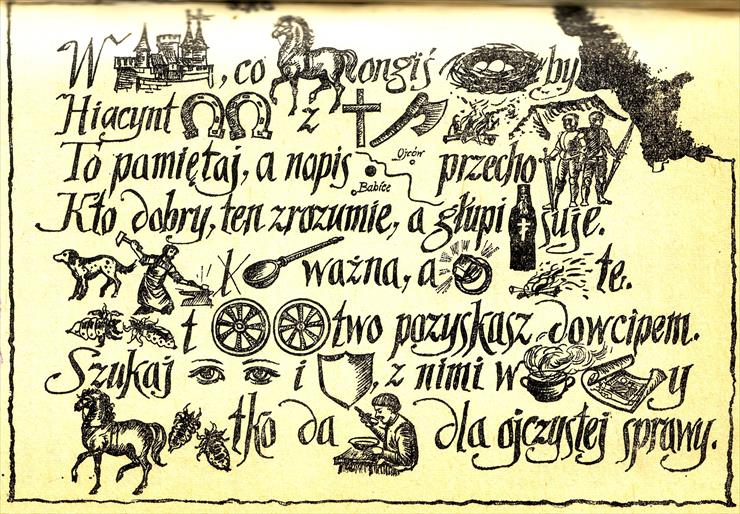 W , co ongiś by
Hiacynt z
To pamiętaj, a napis Ojców Babice przecho
Kto dobry, ten zrozumie, a głupi suje.
k ważna, a te.
t two pozyskasz dowcipem.
Szukaj i , z nimi w y
tko da dla ojczystej sprawy.